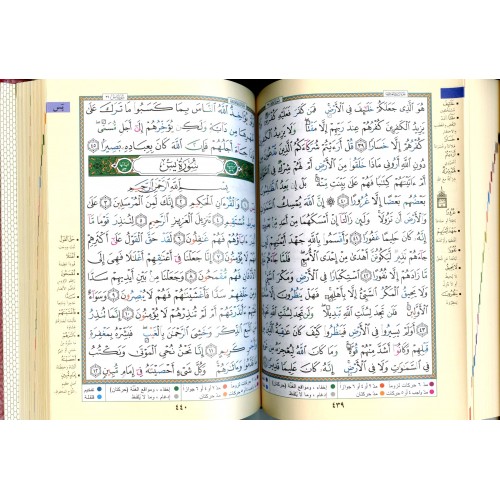 هُوَ الَّذِى جَعَلَكُمْ خَلَٰٓئِفَ فِى الْأَرْضِ فَمَن كَفَرَ فَعَلَيْهِ كُفْرُهُۥ وَلَا
يَزِيدُ الْكَٰفِرِينَ كُفْرُهُمْ عِندَ رَبِّهِمْ إِلَّا مَقْتًا وَلَا يَزِيدُ الْكَٰفِرِينَ
كُفْرُهُمْ إِلَّا خَسَارًا ٣٩ قُلْ أَرَءَيْتُمْ شُرَكَآءَكُمُ الَّذِينَ تَدْعُونَ مِن
دُونِ اللَّهِ أَرُونِى مَاذَا خَلَقُوا مِنَ الْأَرْضِ أَمْ لَهُمْ شِرْكٌ فِى السَّمَٰوَٰتِ
أَمْ ءَاتَيْنَٰهُمْ كِتَٰبًا فَهُمْ عَلَىٰ بَيِّنَتٍ مِّنْهُ بَلْ إِن يَعِدُ الظَّٰلِمُونَ
بَعْضُهُم بَعْضًا إِلَّا غُرُورًا ٤٠ إِنَّ اللَّهَ يُمْسِكُ السَّمَٰوَٰتِ
وَالْأَرْضَ أَن تَزُولَا وَلَئِن زَالَتَآ إِنْ أَمْسَكَهُمَا مِنْ أَحَدٍ مِّنۢ بَعْدِهِۦٓ
إِنَّهُۥ كَانَ حَلِيمًا غَفُورًا ٤١ وَأَقْسَمُوا بِاللَّهِ جَهْدَ أَيْمَٰنِهِمْ لَئِن
جَآءَهُمْ نَذِيرٌ لَّيَكُونُنَّ أَهْدَىٰ مِنْ إِحْدَى الْأُمَمِ فَلَمَّا جَآءَهُمْ نَذِيرٌ
مَّا زَادَهُمْ إِلَّا نُفُورًا ٤٢ اسْتِكْبَارًا فِى الْأَرْضِ وَمَكْرَ السَّيِّئِ
وَلَا يَحِيقُ الْمَكْرُ السَّيِّئُ إِلَّا بِأَهْلِهِۦ فَهَلْ يَنظُرُونَ إِلَّا سُنَّتَ
الْأَوَّلِينَ فَلَن تَجِدَ لِسُنَّتِ اللَّهِ تَبْدِيلًا وَلَن تَجِدَ لِسُنَّتِ اللَّهِ تَحْوِيلًا ٤٣
أَوَلَمْ يَسِيرُوا فِى الْأَرْضِ فَيَنظُرُوا كَيْفَ كَانَ عَٰقِبَةُ الَّذِينَ مِن
قَبْلِهِمْ وَكَانُوٓا أَشَدَّ مِنْهُمْ قُوَّةً وَمَا كَانَ اللَّهُ لِيُعْجِزَهُۥ مِن شَىْءٍ فِى
السَّمَٰوَٰتِ وَلَا فِى الْأَرْضِ إِنَّهُۥ كَانَ عَلِيمًا قَدِيرًا ٤٤
٤٣٩
يس
وَلَوْ يُؤَاخِذُ اللَّهُ النَّاسَ بِمَا كَسَبُوا مَا تَرَكَ عَلَىٰ
ظَهْرِهَا مِن دَآبَّةٍ وَلَٰكِن يُؤَخِّرُهُمْ إِلَىٰٓ أَجَلٍ مُّسَمًّى
فَإِذَا جَآءَ أَجَلُهُمْ فَإِنَّ اللَّهَ كَانَ بِعِبَادِهِۦ بَصِيرًا ٤٥
سُورَةُ يسٓ
بِسْمِ اللَّهِ الرَّحْمَٰنِ الرَّحِيمِ
يسٓ ١ وَالْقُرْءَانِ الْحَكِيمِ ٢ إِنَّكَ لَمِنَ الْمُرْسَلِينَ ٣ عَلَىٰ صِرَٰطٍ
مُّسْتَقِيمٍ ٤ تَنزِيلَ الْعَزِيزِ الرَّحِيمِ ٥ لِتُنذِرَ قَوْمًا مَّآ أُنذِرَ
ءَابَآؤُهُمْ فَهُمْ غَٰفِلُونَ ٦ لَقَدْ حَقَّ الْقَوْلُ عَلَىٰٓ أَكْثَرِهِمْ
فَهُمْ لَا يُؤْمِنُونَ ٧ إِنَّا جَعَلْنَا فِىٓ أَعْنَٰقِهِمْ أَغْلَٰلًا فَهِىَ إِلَى
الْأَذْقَانِ فَهُم مُّقْمَحُونَ ٨ وَجَعَلْنَا مِنۢ بَيْنِ أَيْدِيهِمْ سَدًّا
وَمِنْ خَلْفِهِمْ سَدًّا فَأَغْشَيْنَٰهُمْ فَهُمْ لَا يُبْصِرُونَ ٩ وَسَوَآءٌ
عَلَيْهِمْ ءَأَنذَرْتَهُمْ أَمْ لَمْ تُنذِرْهُمْ لَا يُؤْمِنُونَ ١٠ إِنَّمَا تُنذِرُ
مَنِ اتَّبَعَ الذِّكْرَ وَخَشِىَ الرَّحْمَٰنَ بِالْغَيْبِ فَبَشِّرْهُ بِمَغْفِرَةٍ
وَأَجْرٍ كَرِيمٍ ١١ إِنَّا نَحْنُ نُحْىِ الْمَوْتَىٰ وَنَكْتُبُ مَا قَدَّمُوا
وَءَاثَٰرَهُمْ وَكُلَّ شَىْءٍ أَحْصَيْنَٰهُ فِىٓ إِمَامٍ مُّبِينٍ ١٢
٤٤٠